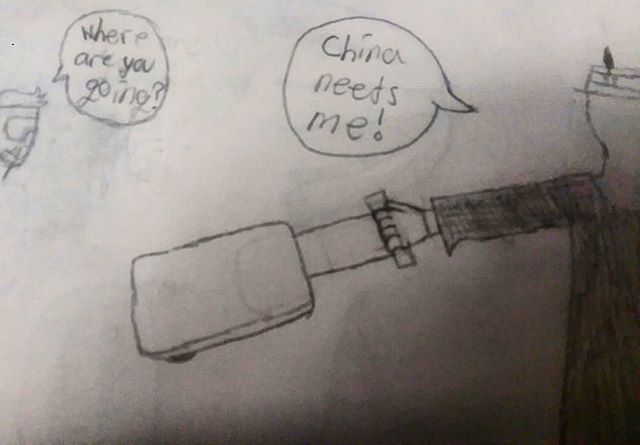 Where
are you
going?
China
needs
me!